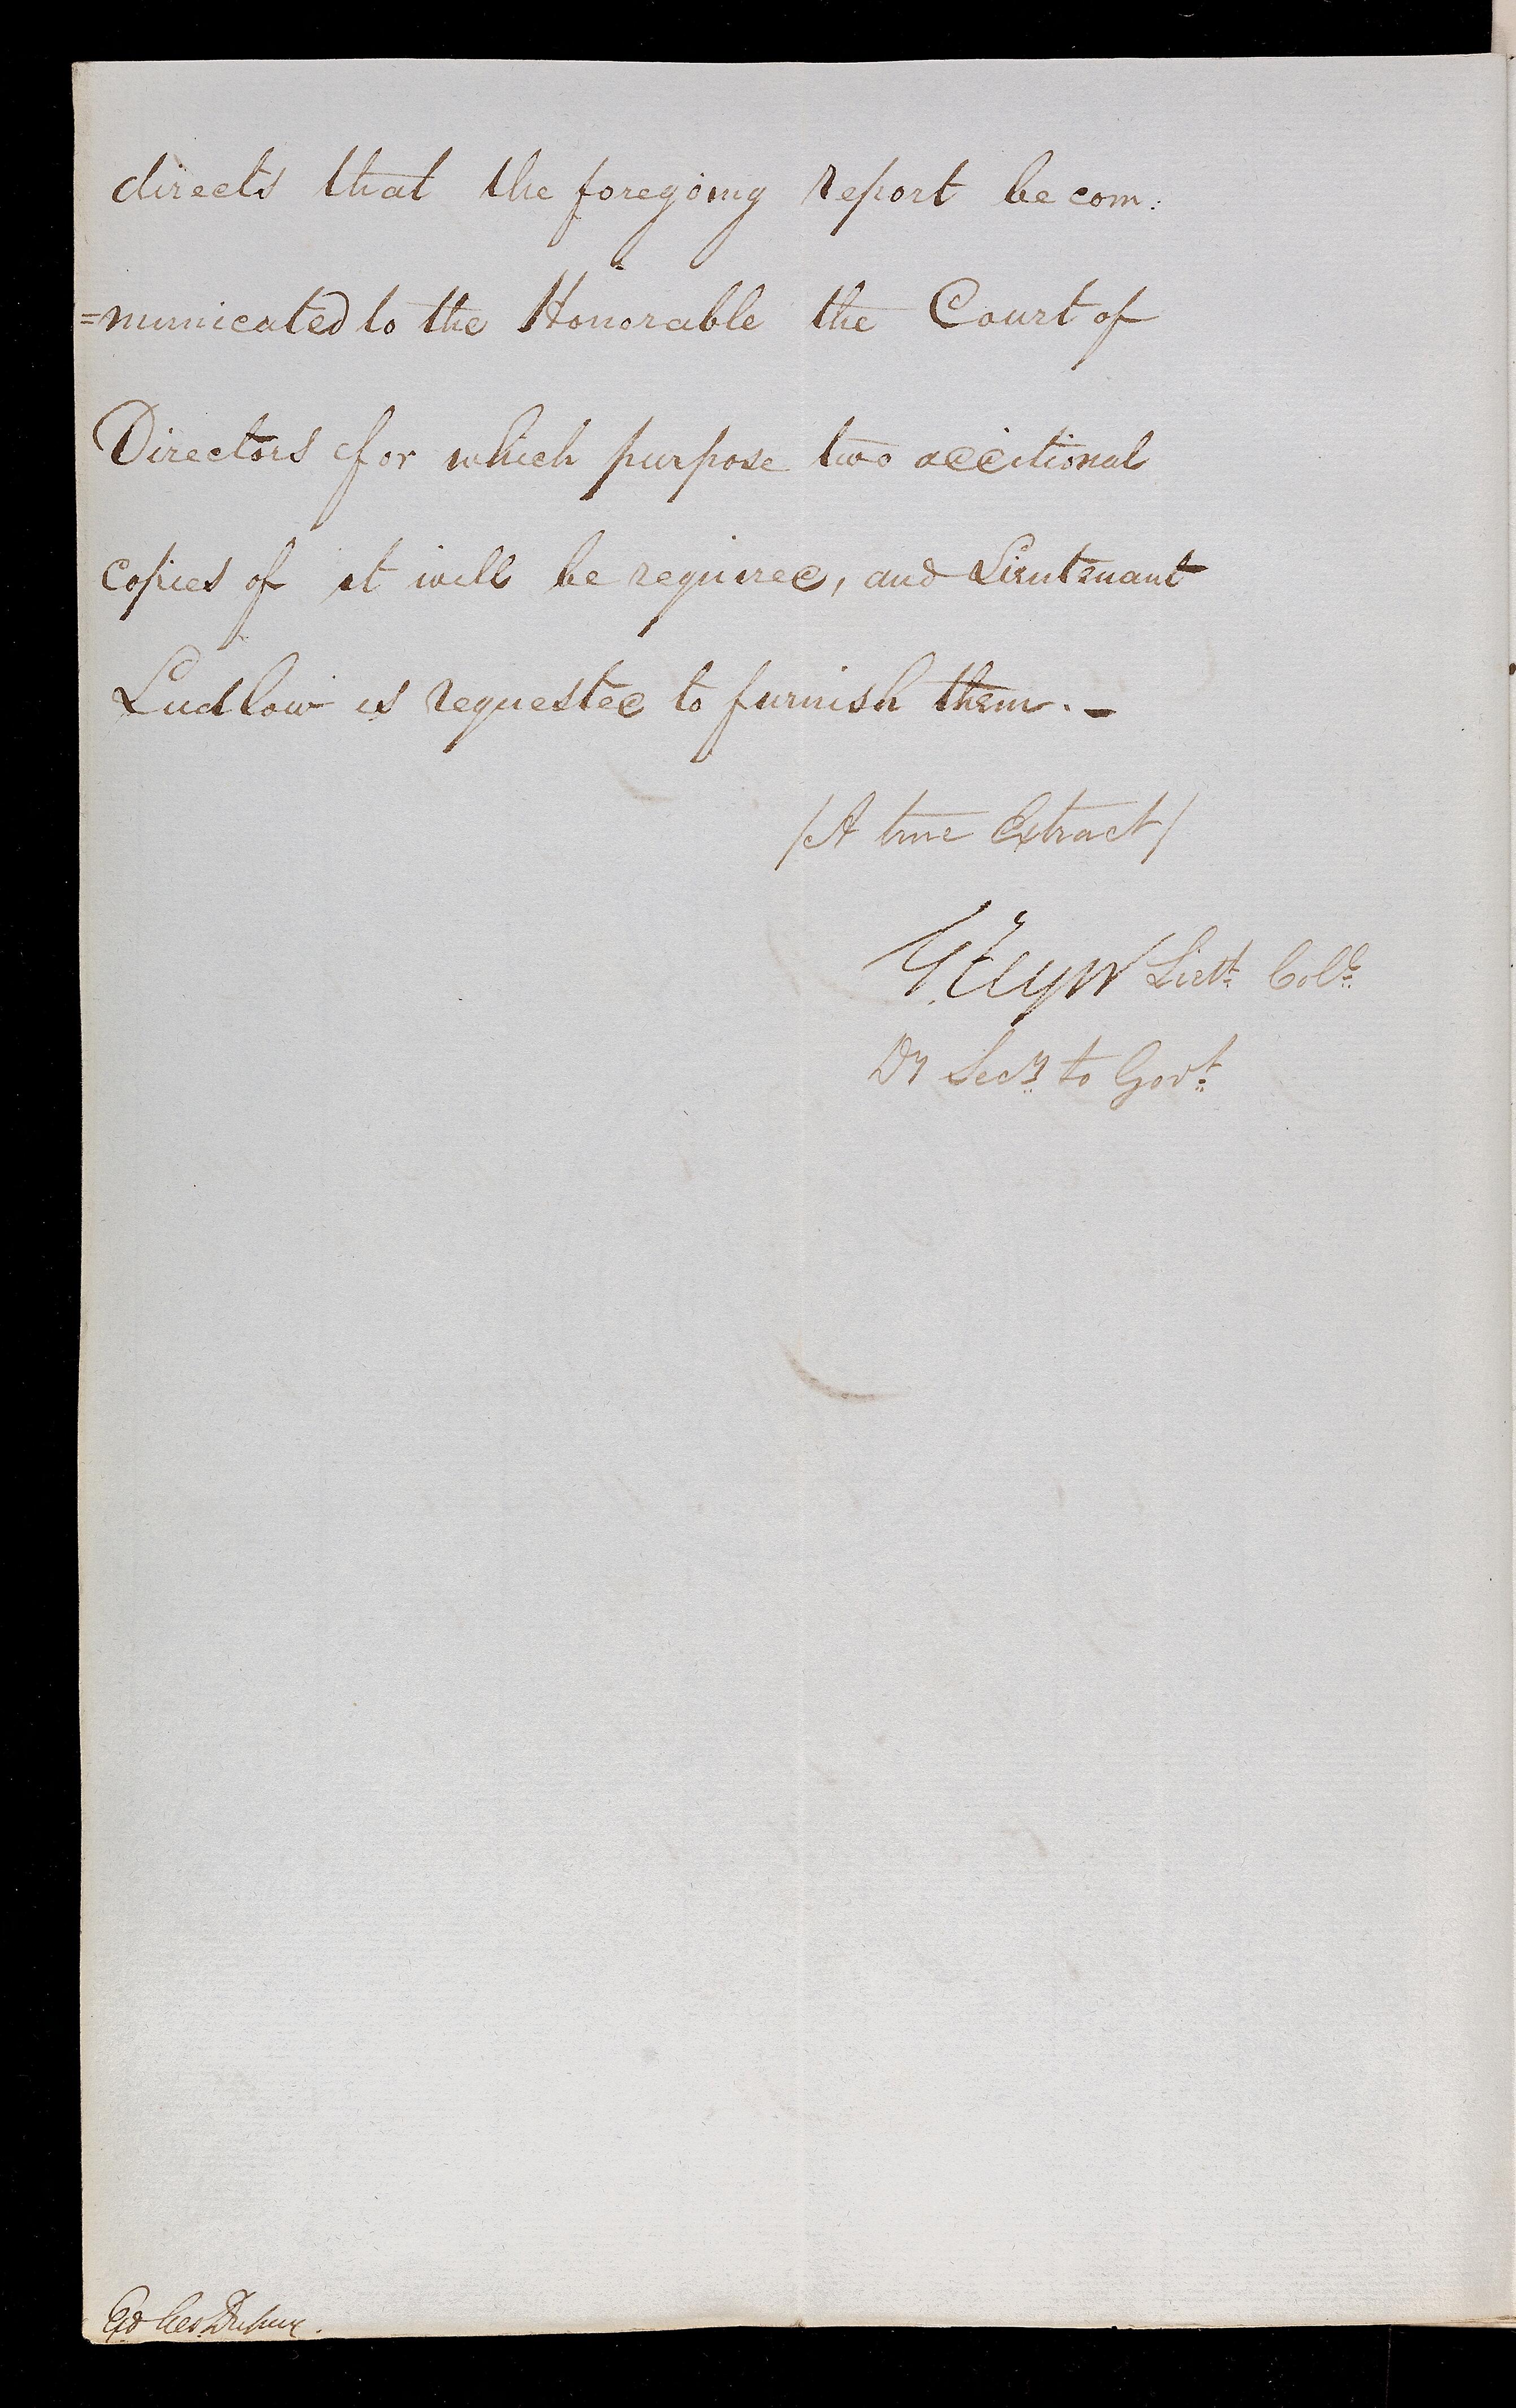 directs that the foregoing report be com:
=municated to the Honorable the Court of
Directors for which purpose two additional
copies of it will be required, and Lieutenant
Ludlow is requested to furnish them. -
/A true Extract/
Lieut. Col.
Dy Secy to Govt.